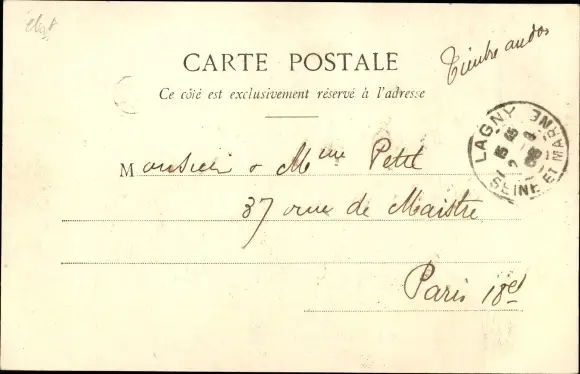 CARTE POSTALE
Timbre au dos
Ce côté est exclusivement réservé à l'adresse
Monsieur & Mme Petit
37 rue de Maistre
Paris 18e
LAGNY
SEINE ET MARNE